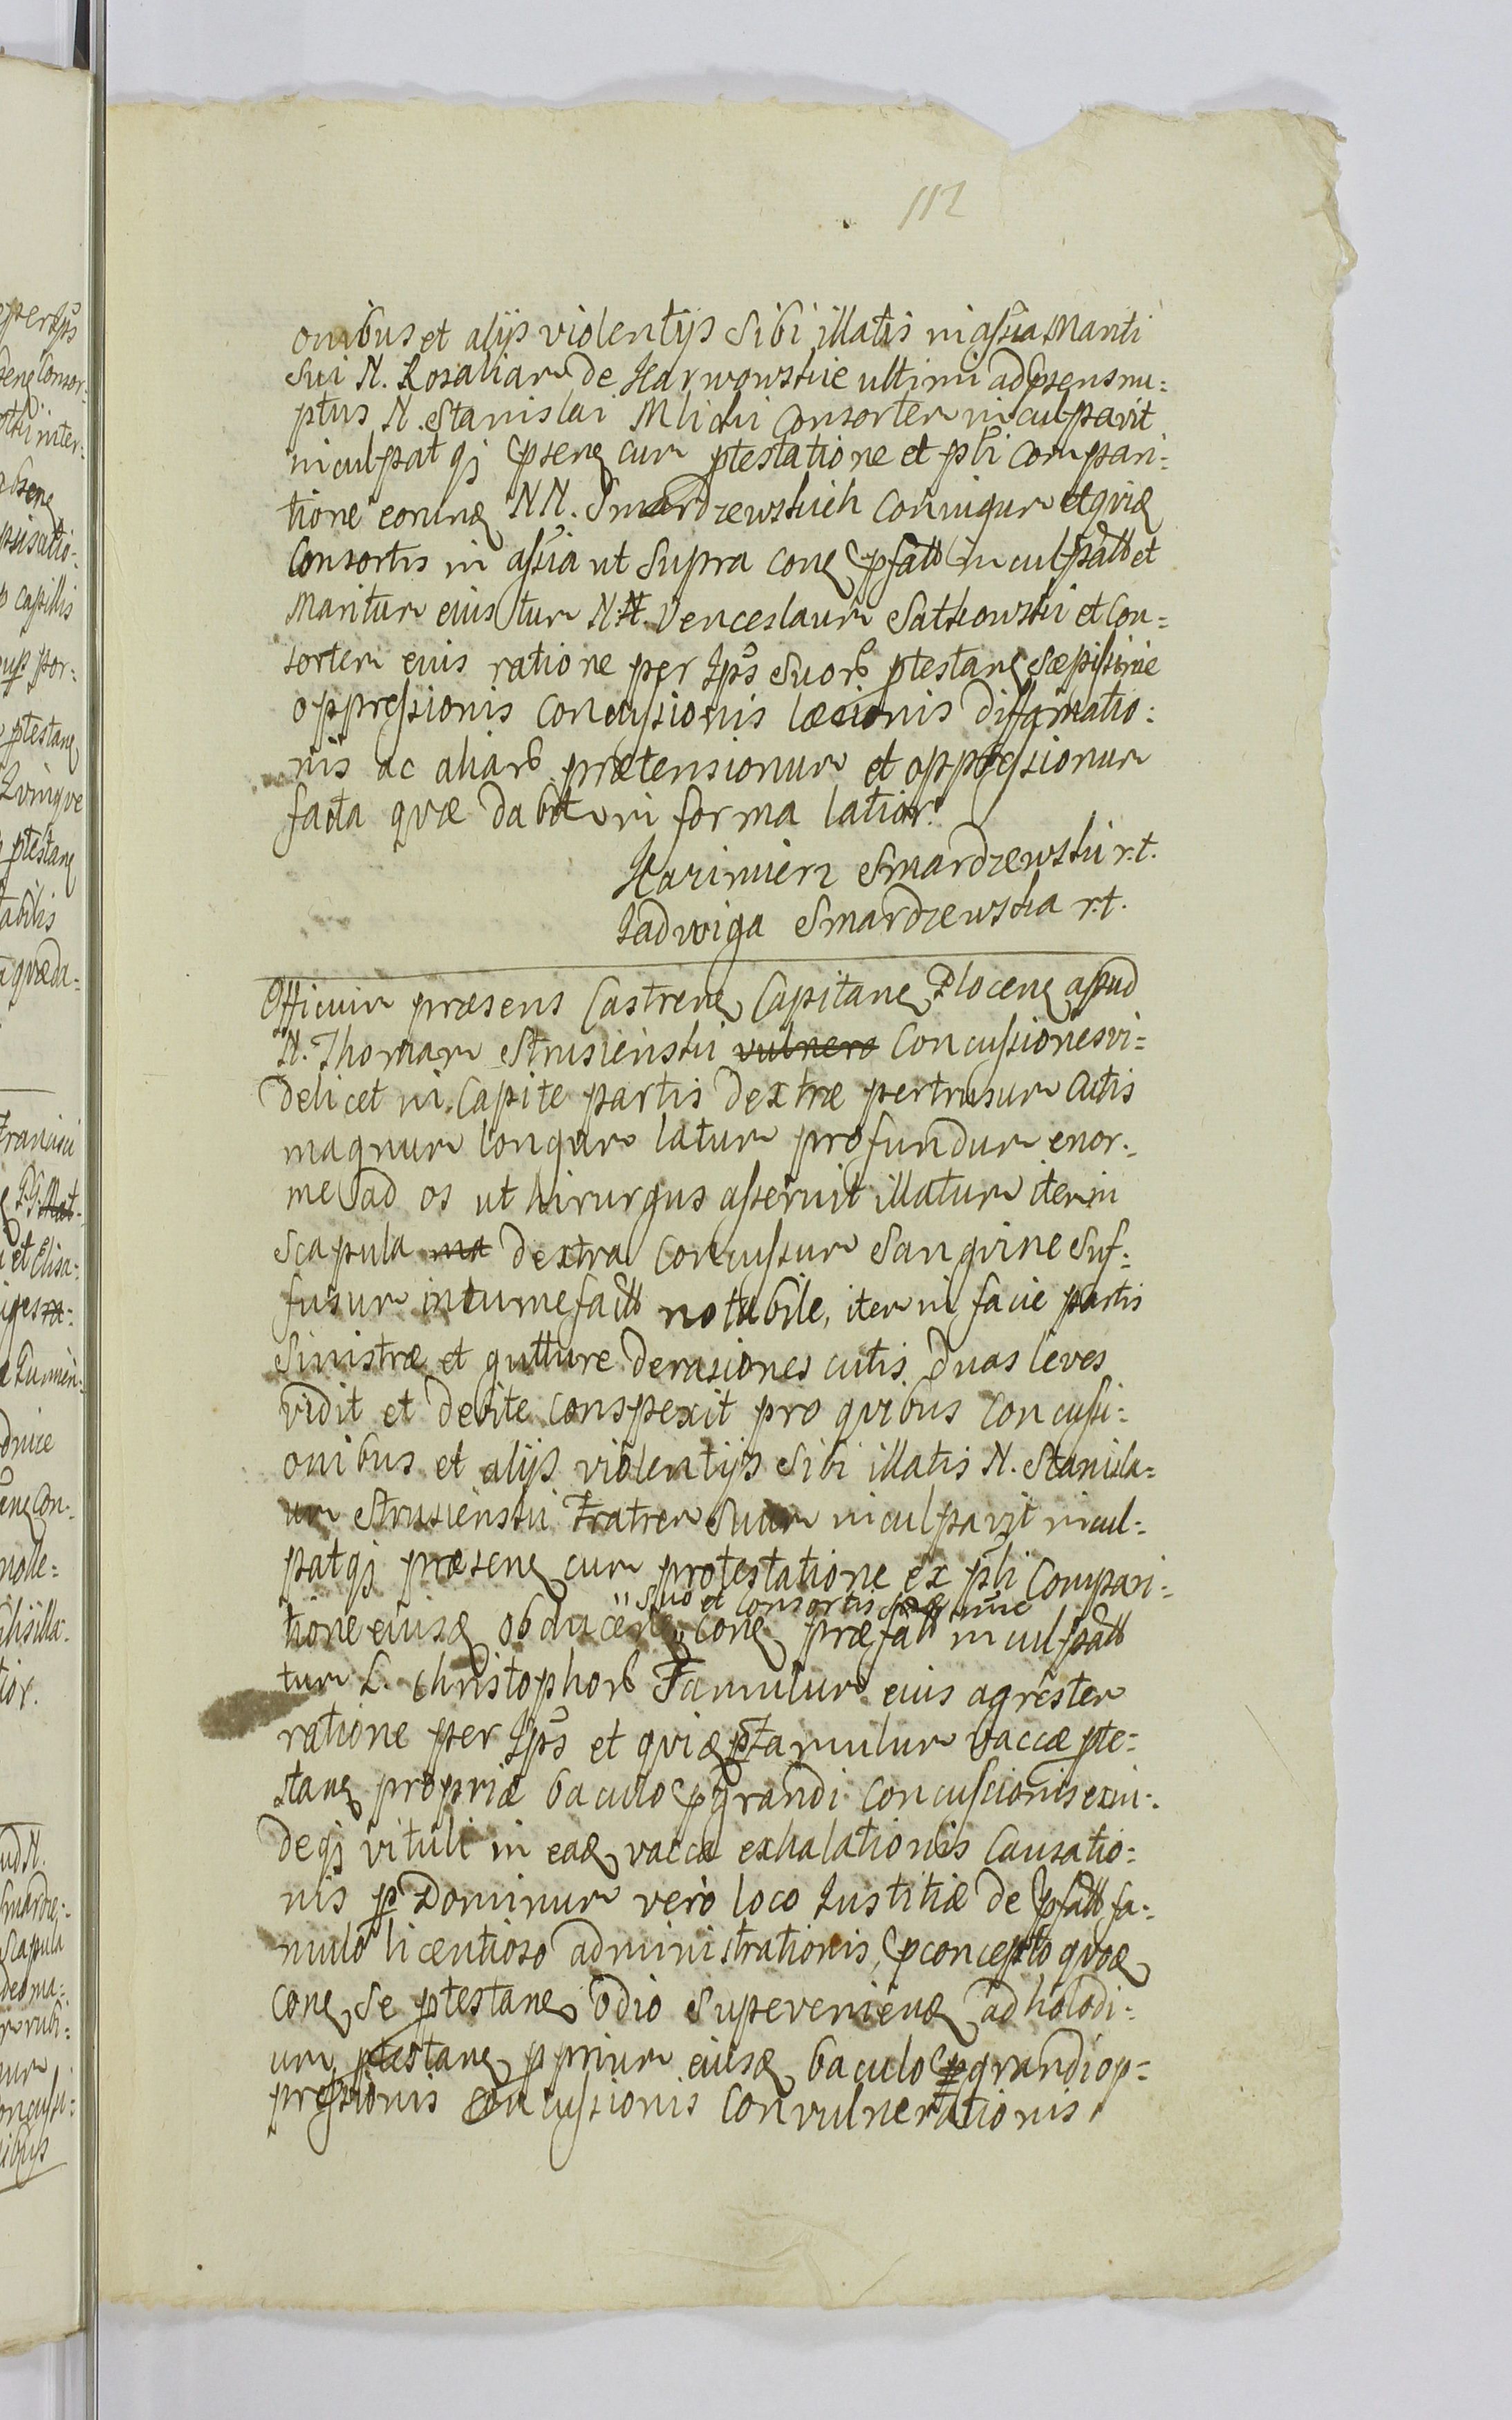 112
onibus et alijs violentijs Sibi illatis in assia Mariti
Sui N. Rosaliam de Karwowskie ultimi ad psens nu=
ptus N. Stanislai Mlicki Consortem inculpavit
inculpatqj psenę cum ptestatione et pli Compari=
tione eorundę NN. Smardzewskich Coniugum et quidę
Consortis in assia ut Supra conę pfatt inculpatt et
Maritum eius tum N.N. Venceslaum Sathowski et Con=
sortem eius ratione per Ipš Suorš ptestanę sæpissime
oppressionis Concussionis læsionis diffamatio=
nis ac aliarš prætensionum et oppressionum
facta quæ dabit in forma latiori
Kazimierz Smardzewski r.t.
Jadwiga Smardzewska r.t.
Officium præsens Castrenę Capitanę Plocenę apud
N. Thomam Strusienski vulnero Concussiones vi=
delicet in Capite partis dextræ pertrusum Cutis
magnum longum latum profundum enor=
me ad os ut hirurgus asseruit illatum item in
Scapula ma dextra Concussum Sanguine Suf=
fusum intumefactt notabile, item in facie partis
Sinistræ et gutture derasiones cutis duas leves
vidit et debite conspexit pro quibus Concussi=
onibus et alijs violentijs Sibi illatis N. Stanisla=
um Strusienski Fratrem Suum inculpavit incul=
patqj præsenę cum protestatione ex pli Compari=
Suo et Consortis suæ nnie
tione eiusdę obducenę conę præfatt inculpatt
tum L. Christophorš Famulum eius agrestem
ratione per Ipš et quidę p Famulum vaccæ pte=
stanę propriæ baculo pgrandi concussionis exin=
deqj vituli in eadę vacca exhalationis Causatio=
nis p Dominum vero loco Iustitiæ de pfatt fa=
mulo licentioso administrationis, pconcepto quodę
conę Se ptestanę odio Supevenienę ad holodi=
um ptestanę pprium eiusdę baculo pgrandi op=
pressionis Concussionis Convulnerationis